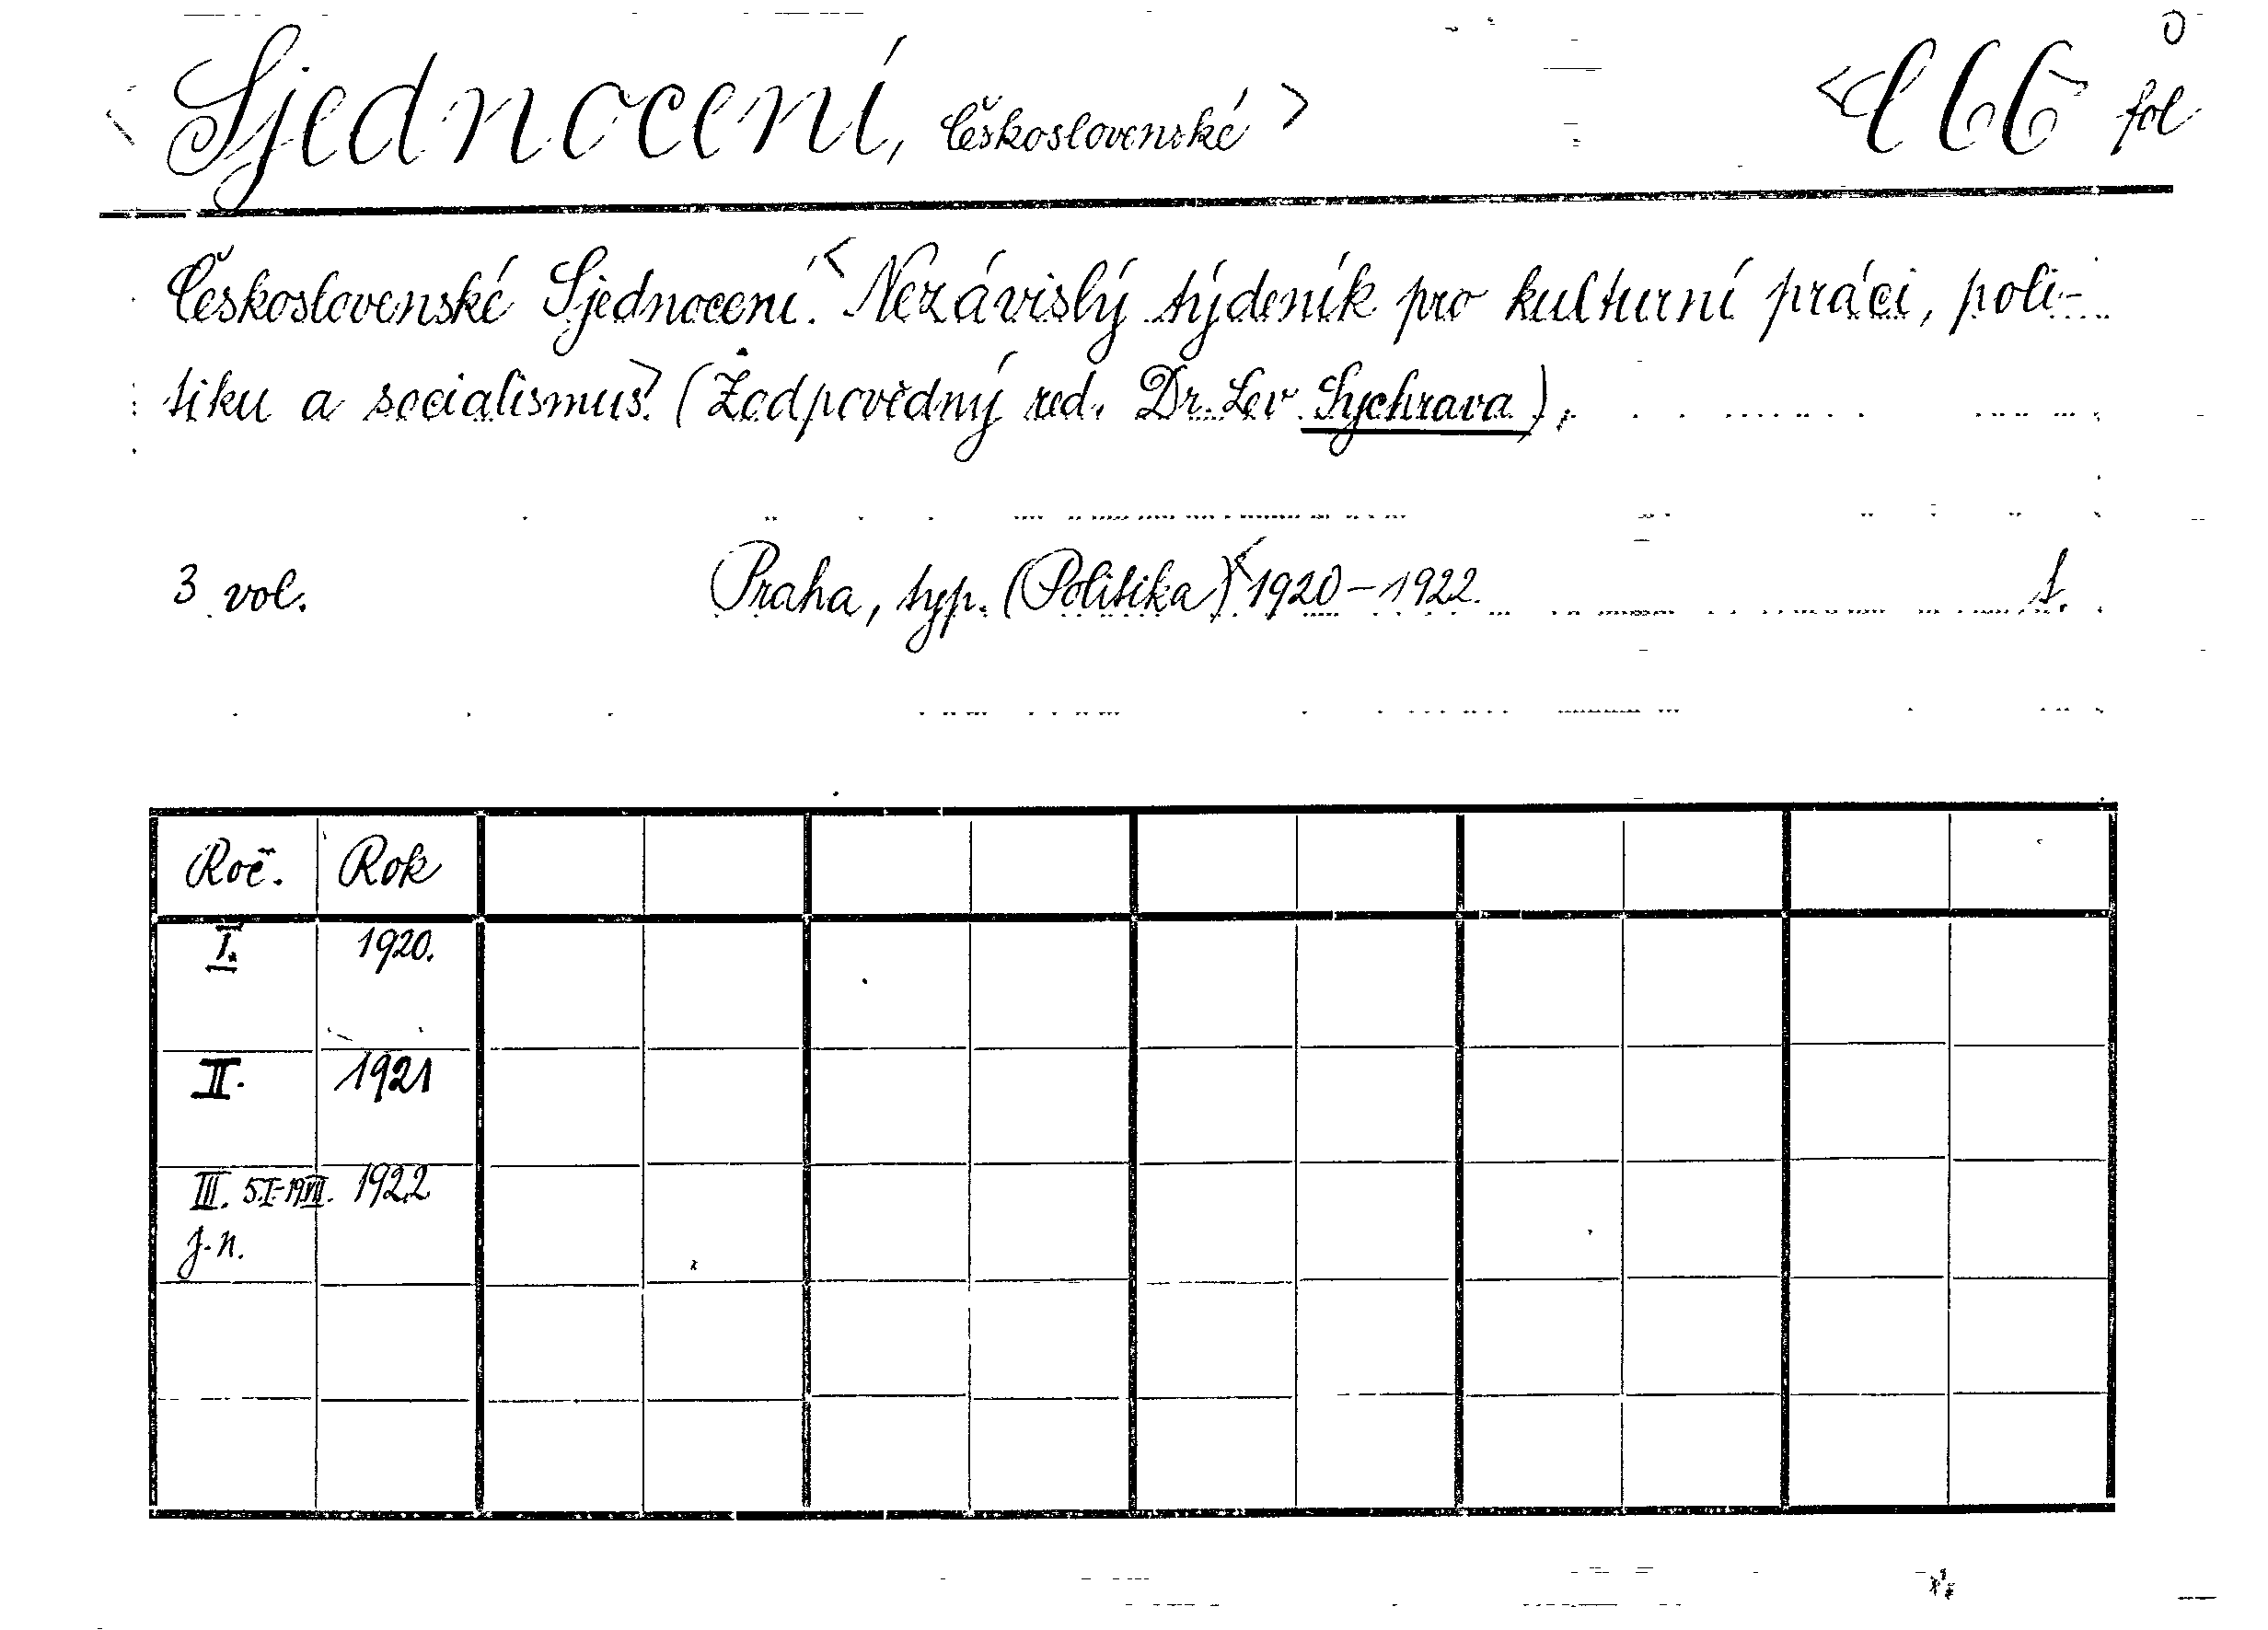 <Sjednocení, Československé> <C 66> fol
Československé Sjednocení.<Nezávislý týdeník pro kulturní práci, poli-
tiku a socialismus>. (Zodpovědný red. Dr. Lev Sychrava).
3 vol. Praha, typ. (Politika)<1920-1922. f.
Roč. Rok
I. 1920.
II. 1921
III. 5.I.-19.VII. 1922
j. n.